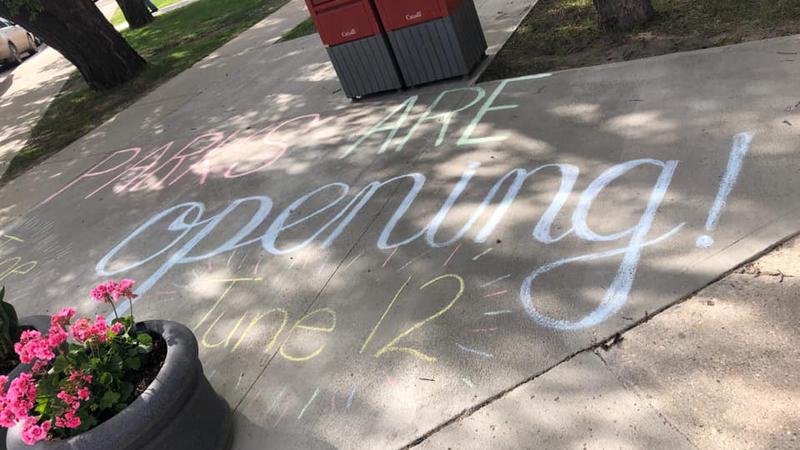 Canada
Canada
PARKS ARE
opening!
June 12